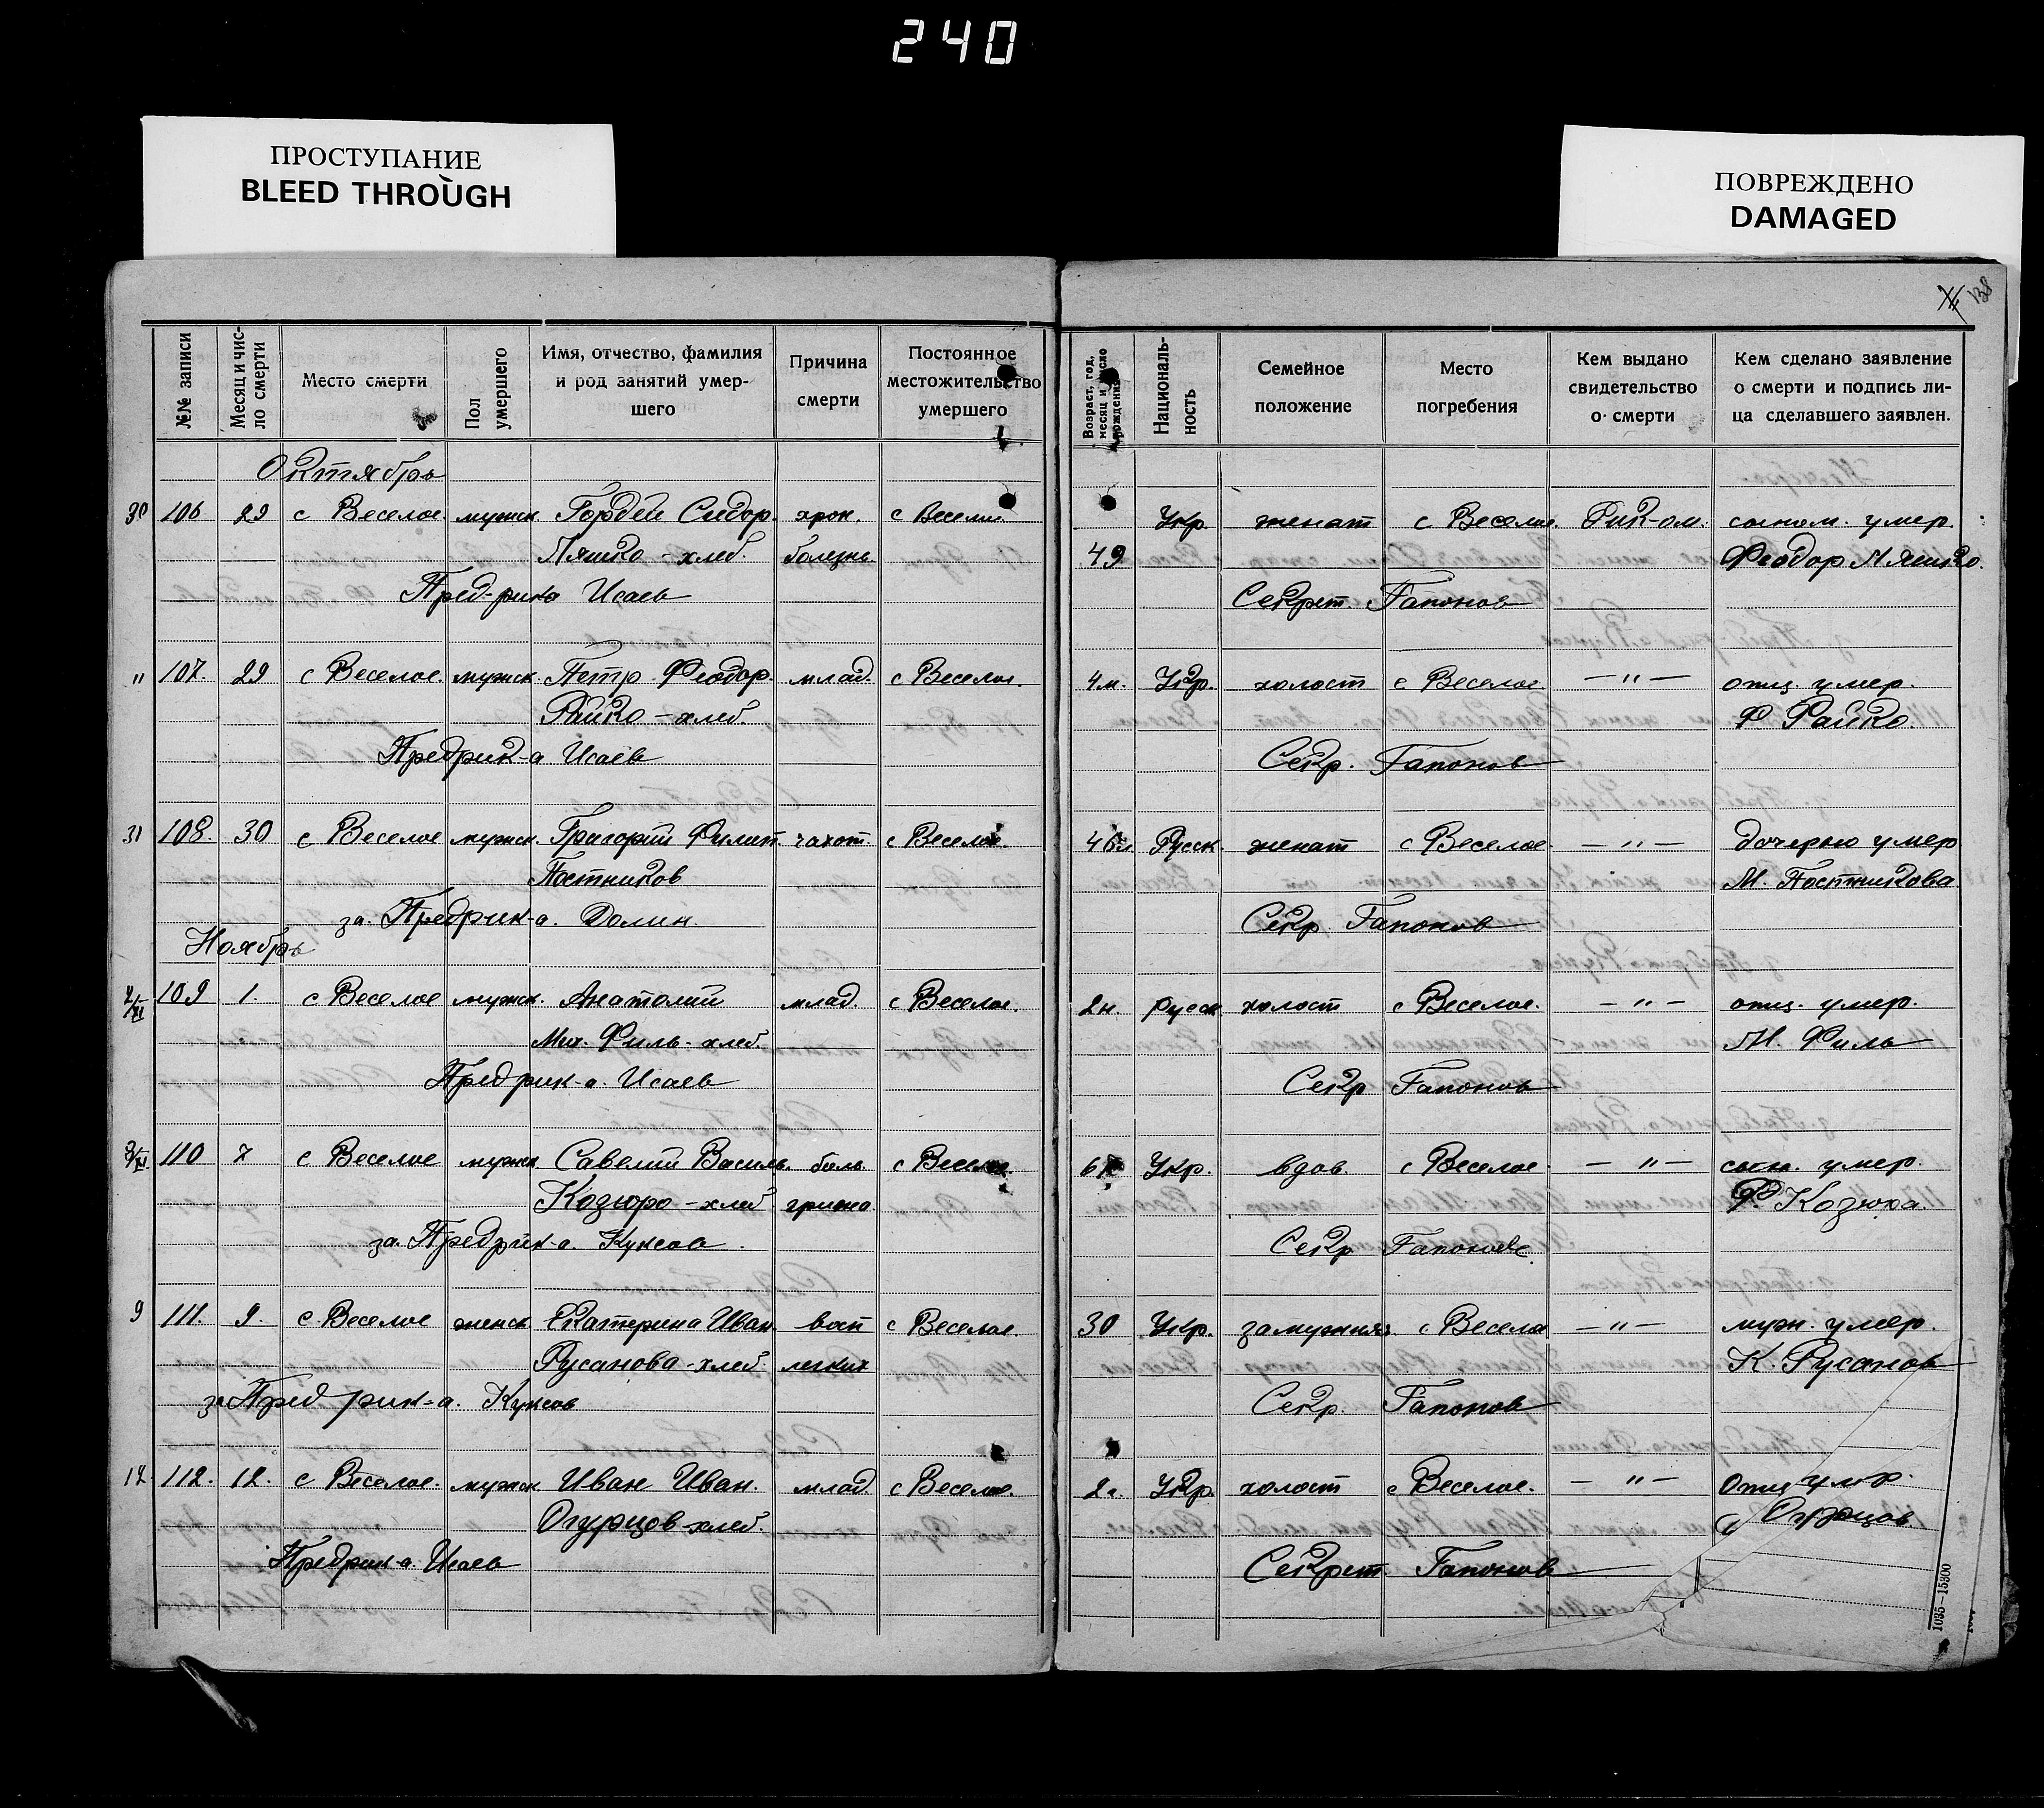 240
ПРОСТУПАНИЕ
BLEED THROUGH
ПОВРЕЖДЕНО
DAMAGED
138
№№ записи
Месяц и чис-
ло смерти
Место смерти
Пол
умершего
Имя, отчество, фамилия
и род занятий умер-
шего
Причина
смерти
Постоянное
местожительство
умершего
Возраст, год,
месяц и число
рождения
Националь-
ность
Семейное
положение
Место
погребения
Кем выдано
свидетельство
о смерти
Кем сделано заявление
о смерти и подпись ли-
ца сделавшего заявлен.
Октябрь
30 106 29 с Веселое мужск. Гордей Сидор. хрон. с Веселое Укр. женат с Веселое. Рик-ом. сыном. умер.
Пляшко - хлеб. болезнь. 49 Феодор Пляшко.
Пред-рика Исаев Секрет. Гапонов
" 107. 29 с Веселое. мужск. Петр Феодор. млад. с Веселое. 4 м. Укр. холост с Веселое. — " — отц. умер.
Райко - хлеб. Ф Райко.
Предрик-а Исаев Секр. Гапонов
31 108. 30 с Веселое мужск. Григорий Филип. чахот. с Веселое. 46 л Русск. женат с Веселое — " — дочерью умер
Постников М. Постникова
за. Предрик-а. Долин. Секр. Гапонов
Ноябрь
109 1. с Веселое мужск. Анатолий млад. с Веселое. 2 н. русск. холост с Веселое. — " — отц. умер.
Мих. Филь - хлеб. М. Филь
Предрик-а. Исаев Секр Гапонов
110 7 с Веселое мужск Савелий Василь. боль с Веселое. Укр. вдов. с Веселое — " — сын. умер.
Козюро - хлеб Козюра.
за. Предрик-а. Куксов. Секр Гапонов
9 111. 9. с. Веселое женск Екатерина Иван. восп с Веселое. 30 Укр. замужняя с Веселое — " — муж. умер.
Русанова - хлеб. легких К. Русанов
за Пред рик-а. Куксов Секр. Гапонов
12. 112. 12. с Веселое. мужск Иван Иван. млад. с Веселое. 2 г. Укр. холост с Веселое. — " — Отц умер.
Огурцов - хлеб. Огурцов.
Предрик-а. Исаев Секрет. Гапонов
1035—15300